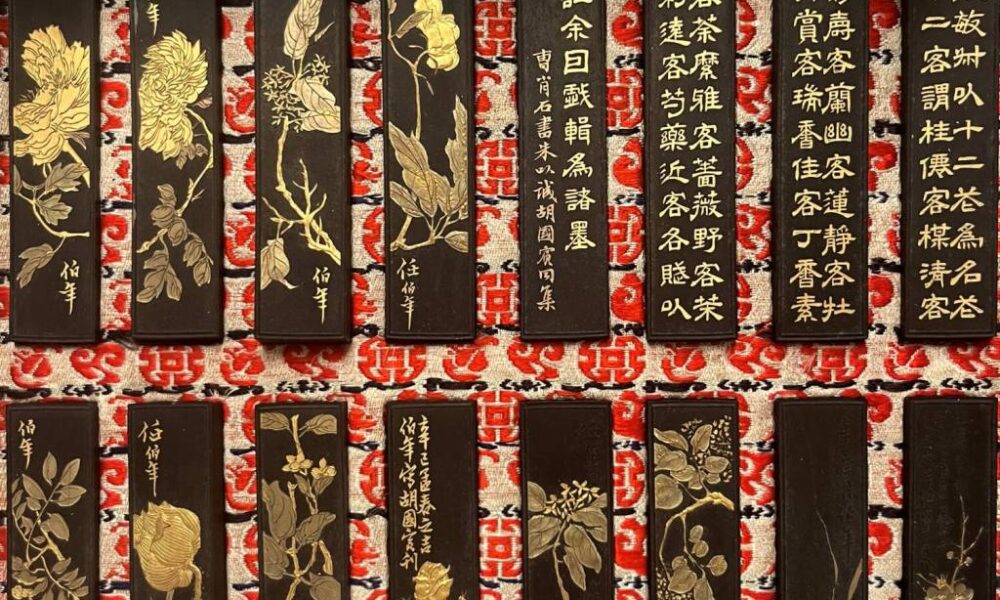 敏尗㕥十二芲為名芲
二客謂桂僊客楳清客
壽客蘭幽客蓮靜客牡
賞客瑞香佳客丁香素
客荼縻雅客薔薇野客茶
遠客芍藥近客各賦㕥
余曰戲輯為諸墨
曹肖石書朱以誠胡國賓同集
任伯年
伯年
年
伯年
年
辛巳孟春之吉
伯年寫胡國賓刊
任伯年
伯年